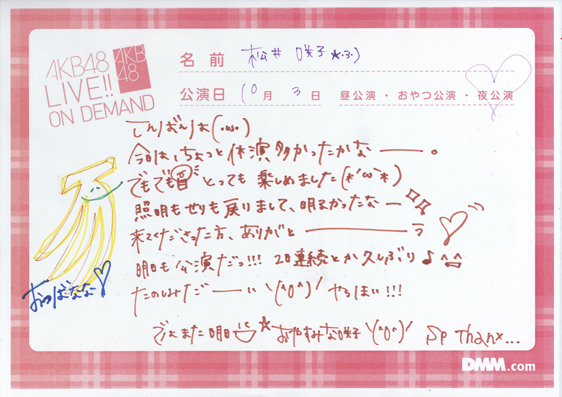 AKB48
LIVE!!
ON DEMAND
AKB
48
名前 松井 咲子★・3・)
公演日 10月 3日 昼公演・おやつ公演・夜公演
てんばんりお(・ω・)
今日は、ちょっと休演多かったかなー。
でもでも皆 とっても楽しめました(*'ω`*)
照明もせりも戻りまして、明るかったなー
来てくださった方、ありがとーう
明日も公演だっ!!! 2日連続とか久しぶり♪^^
たのしみだーい \(^o^)/ やほほい!!!
おつばななー♡
ではまた明日 ★おやすみな咲子\(^o^)/ Sp Thanx...
DMM.com